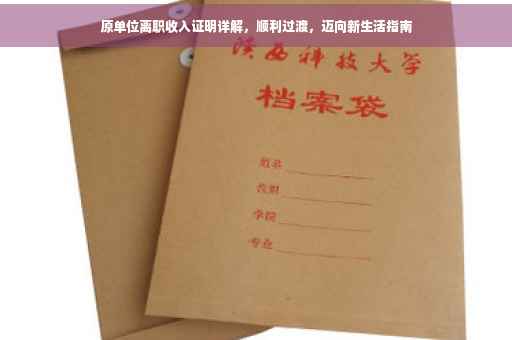 原单位离职收入证明详解，顺利过渡，迈向新生活指南
陕西科技大学
档案袋
姓名
学院
专业